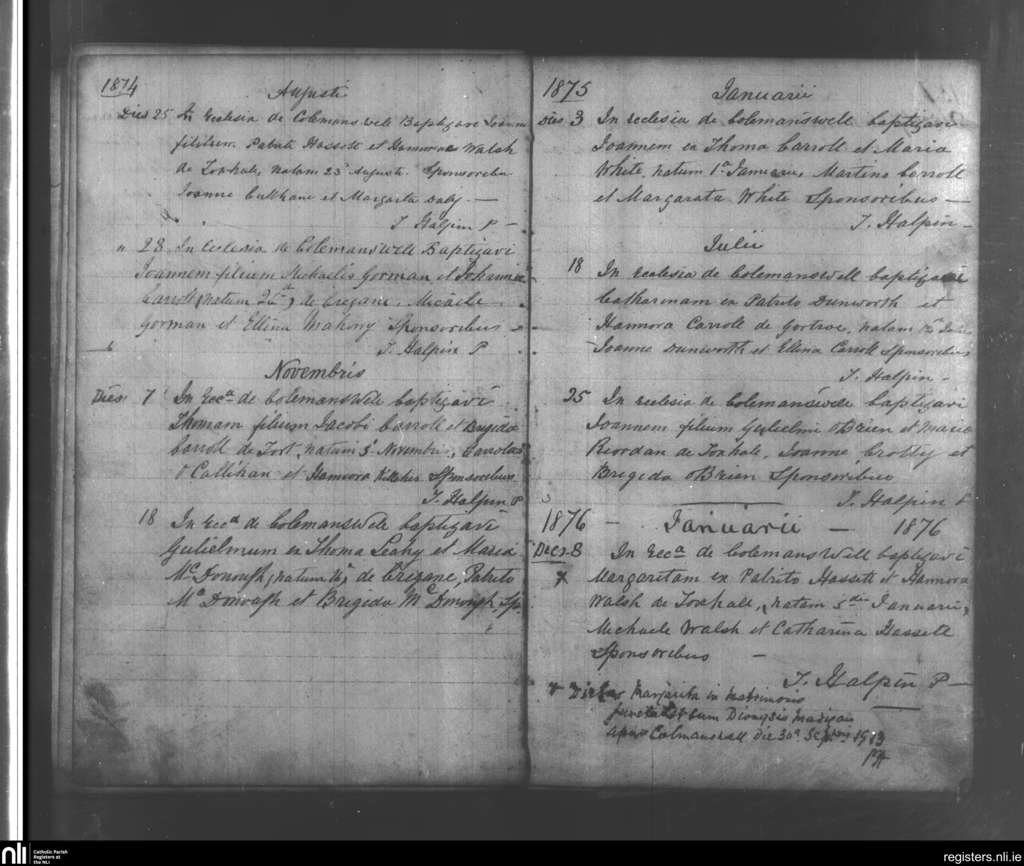 1874
Augusti
Dies 25 In Ecclesia de Colemans well Baptizavi
Patritii Hassett et Hannorae Walsh
de Foxhall, natam 23° Augusti. Sponsoribus
Joanne Culhane et Margarita Daly —
T. Halpin P —
" 28 In Ecclesia de Colemanswell Baptizavi
Joannem filium Michaelis Gorman et Johannae
Carroll, natum de Cregane, Micaele
Gorman et Ellena Mahony Sponsoribus —
T. Halpin P
Novembris
Dies 7 In Ecca de Colemanswell baptizavi
Thomam filium Jacobi Carroll et Brigida
Carroll de Fort, natum Novembris, Carrolus
O Callihan et Hannora Sponsoribus
T. Halpin P
18 In Ecca de Colemanswell baptizavi
Gulielmum ex Thoma Leahy et Maria
McDonough, natum de Cregane, Patrito
McDonough et Brigida McDonough, Sp.
1875
Januarii
Dies 3 In ecclesia de Colemanswell baptizavi
Joannem ex Thoma Carroll et Maria
White, natum 1a Januarii, Martino Carroll
et Margarata White Sponsoribus —
T. Halpin —
Julii
18 In ecclesia de Colemanswell baptizavi
Catharinam ex Patrito Dunworth et
Hannora Carroll de Gortroe, natam
Joanne Dunworth et Ellena Carroll Sponsoribus
T. Halpin —
25 In ecclesia de Colemanswell baptizavi
Joannem filium Gulielmi OBrien et Maria
Riordan de Foxhall, Joanne Crotty et
Brigida OBrien Sponsoribus
T. Halpin P
1876 — Januarii — 1876
Dies 8 In Ecca de Colemans Well baptizavi
x Margaritam ex Patrito Hassett et Hannora
Walsh de Foxhall, natam 5 die Januarii,
Michaele Walsh et Catharina Hassett
Sponsoribus —
T. Halpin P —
x Margarita in matrimonio
juncta est cum Dionysio Madigan
apud Colmanswell Die 30a 1913
PH
nli
Catholic Parish
Registers at
the NLI
registers.nli.ie